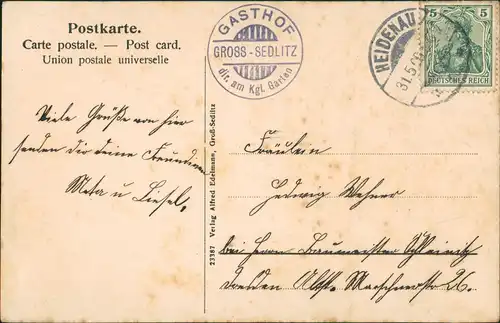 Postkarte.
Carte postale. — Post card.
Union postale universelle
GASTHOF
GROSS-SEDLITZ
dir. am Kgl. Garten
HEIDENAU
31.5.
5 5
DEUTSCHES REICH
Viele Grüße von hier
senden dir deine Freundinnen
Meta u Liesel,
23387 Verlag Alfred Edelmann, Groß-Sedlitz
Fräulein
Hedwig Wehner
bei Herrn Baumeister
Dresden Altst. Marschnerstr 26.